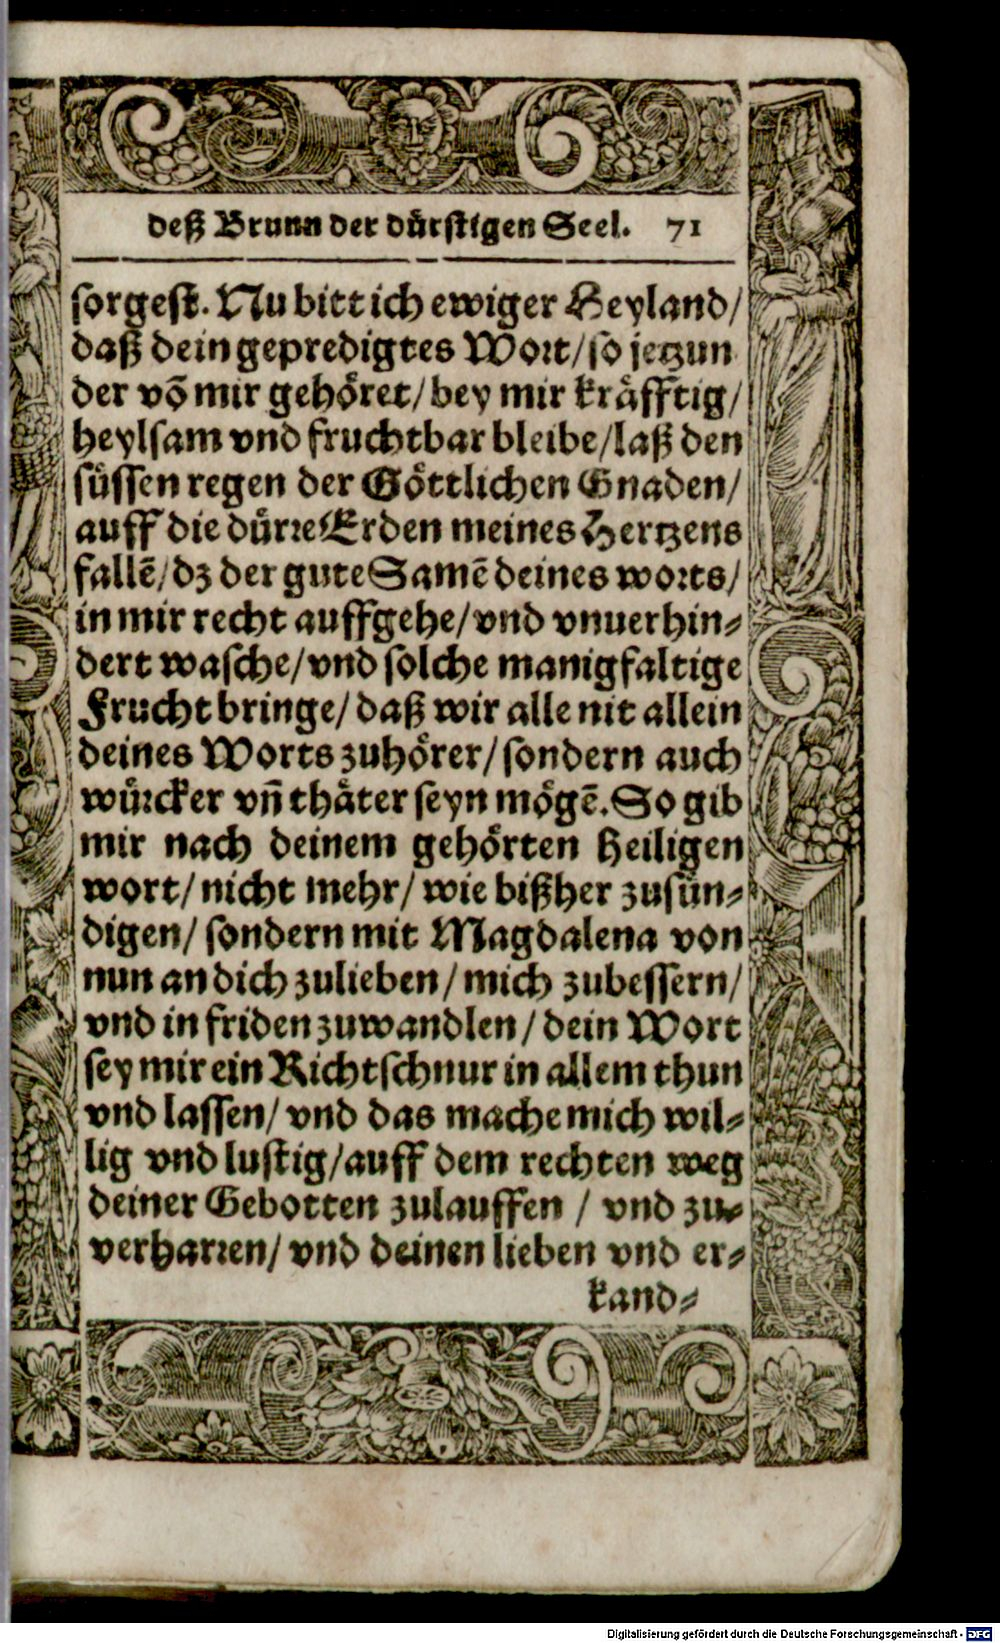 deß Brunn der dürstigen Seel. 71
sorgest. Nu bitt ich ewiger Heyland/
daß dein gepredigtes Wort/ so jetzun
der võ mir gehöret/ bey mir kräfftig/
heylsam vnd fruchtbar bleibe/ laß den
süssen regen der Göttlichen Gnaden/
auff die dürre Erden meines Hertzens
fallẽ/ dz der gute Samẽ deines worts/
in mir recht auffgehe/ vnd vnuerhin⸗
dert wasche/ vnd solche manigfaltige
Frucht bringe/ daß wir alle nit allein
deines Worts zuhörer/ sondern auch
würcker vñ thäter seyn mögẽ. So gib
mir nach deinem gehörten Heiligen
wort/ nicht mehr/ wie bißher zusün⸗
digen/ sondern mit Magdalena von
nun an dich zulieben/ mich zubessern/
vnd in friden zuwandlen/ dein Wort
sey mir ein Richtschnur in allem thun
vnd lassen/ vnd das mache mich wil⸗
lig vnd lustig/ auff dem rechten weg
deiner Gebotten zulauffen / vnd zu⸗
verharren/ vnd deinen lieben vnd er⸗
kand⸗
Digitalisierung gefördert durch die Deutsche Forschungsgemeinschaft - DFG